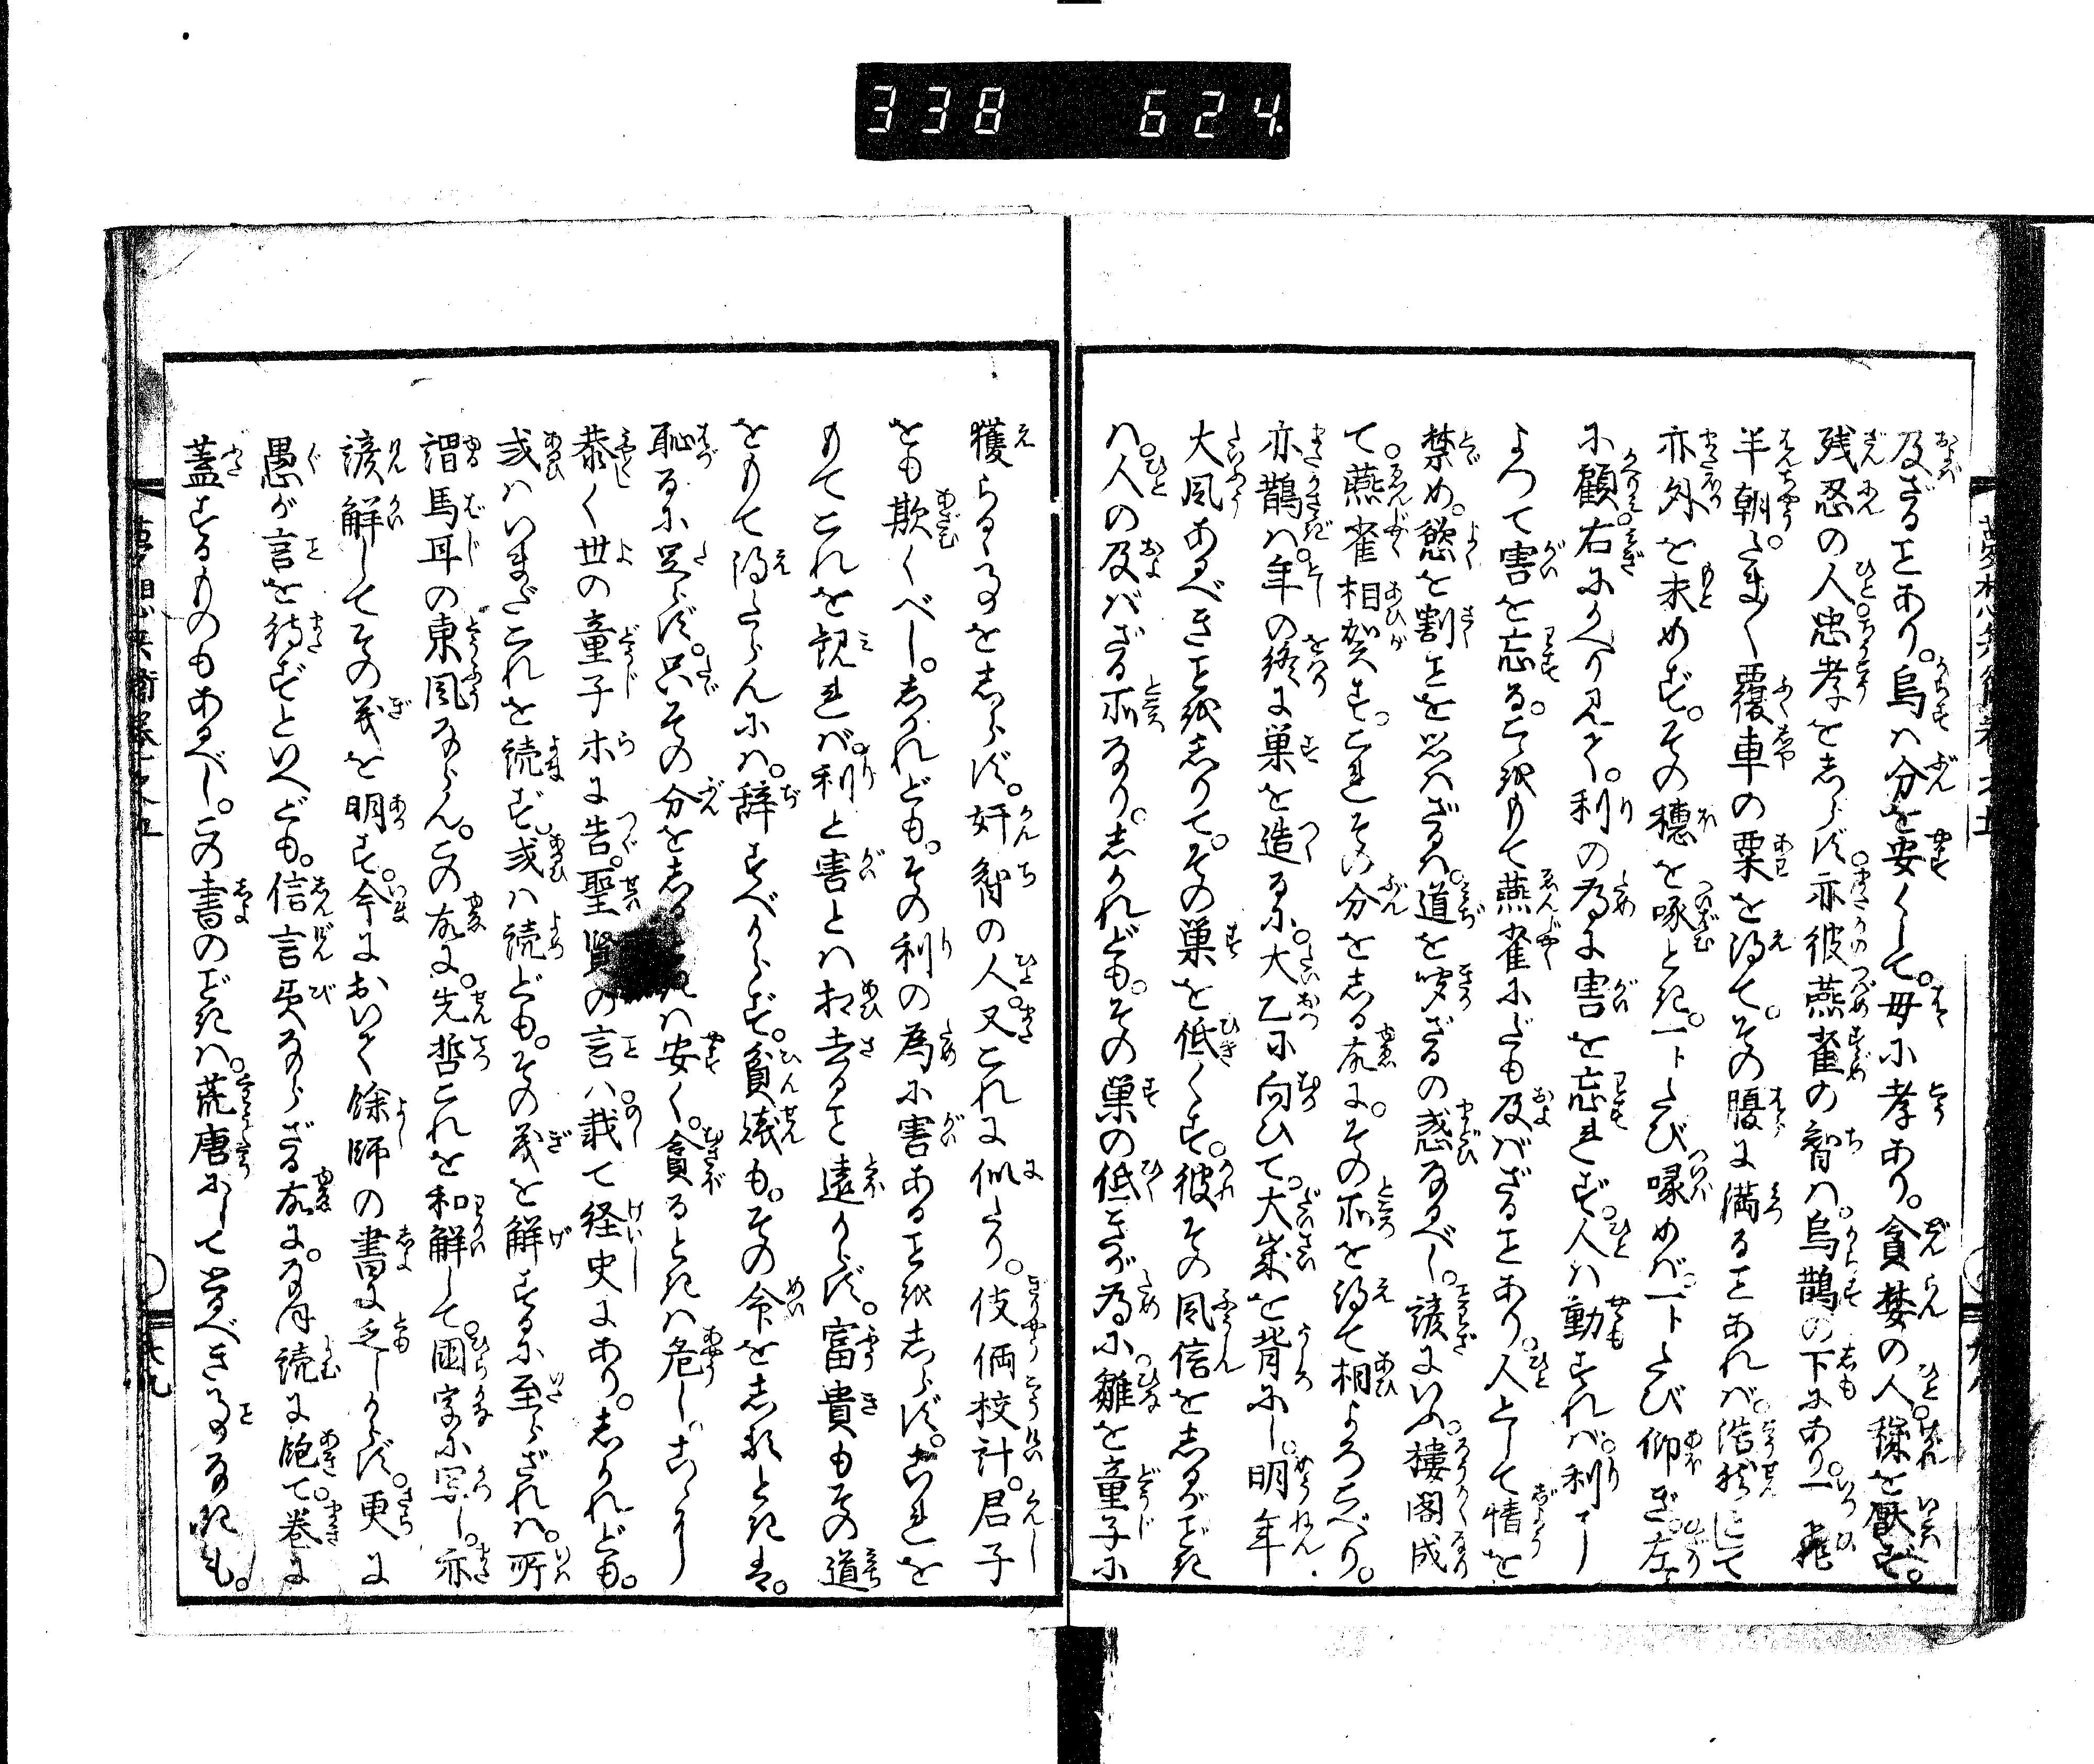 338 624
及ざることあり。烏ハ分を安くして。母に孝あり。貪婪の人。穢を厭ず。
残忍の人忠孝をしらず。亦彼燕雀の智ハ。烏鵲の下にあり。一飛
半朝。たま〳〵覆車の粟を得て。その腹に満ることあれバ。浩然にして
亦外を求めず。その穂を啄とき。一トたび啄めバ一トたび仰ぎ。左
に顧右にかへり見て。利の為に害を忘れず。人ハ動すれハ。利に
よつて害を忘る。こゝをもて燕雀にだも及バざることあり。人として情を
禁め。慾を割ことを思ハざるハ。道を
て。燕雀相賀す。これその分をしる故に。その所を得て相よろこべり。
亦鵲ハ。年の終に巣を造るに。大乙に向ひて。大歳を背にし。明年
大風あるべきことをしりて。その巣を低くす。彼その風信をしるがごとき
ハ。人の及バざる所なり。しかれども。その巣の低きが為に。雛を童子に
獲らるゝことをしらず。奸智の人。又これに似たり。伎倆校計。君子
をも欺くべし。しかれども。その利の為に害あることをしらず。これを
もてこれを観れバ。利と害とハ相去ること遠からず。富貴もその道
をもて得たらんにハ。辞すべからず。貧賎も。その命をしるときは。
恥るに足らず。只その分をしるハ安く。貪るときハ危し。こゝより
恭く世の童子ホに告。聖賢の言ハ。載て経史にあり。しかれども。
或ハいまだこれを読ず。或ハ読ども。その義を解するに至らざれハ。所
謂馬耳の東風ならん。この故に。先哲これを和解して。国字に写し。亦
諺解してその義を明す。今においてハ餘師の書に乏しからず。更に
愚が言を待ずといへども。信言美ならざる故に。なほ読に飽て。巻に
蓋するものもあるべし。この書のごときハ。荒唐にして当べきことなきも。